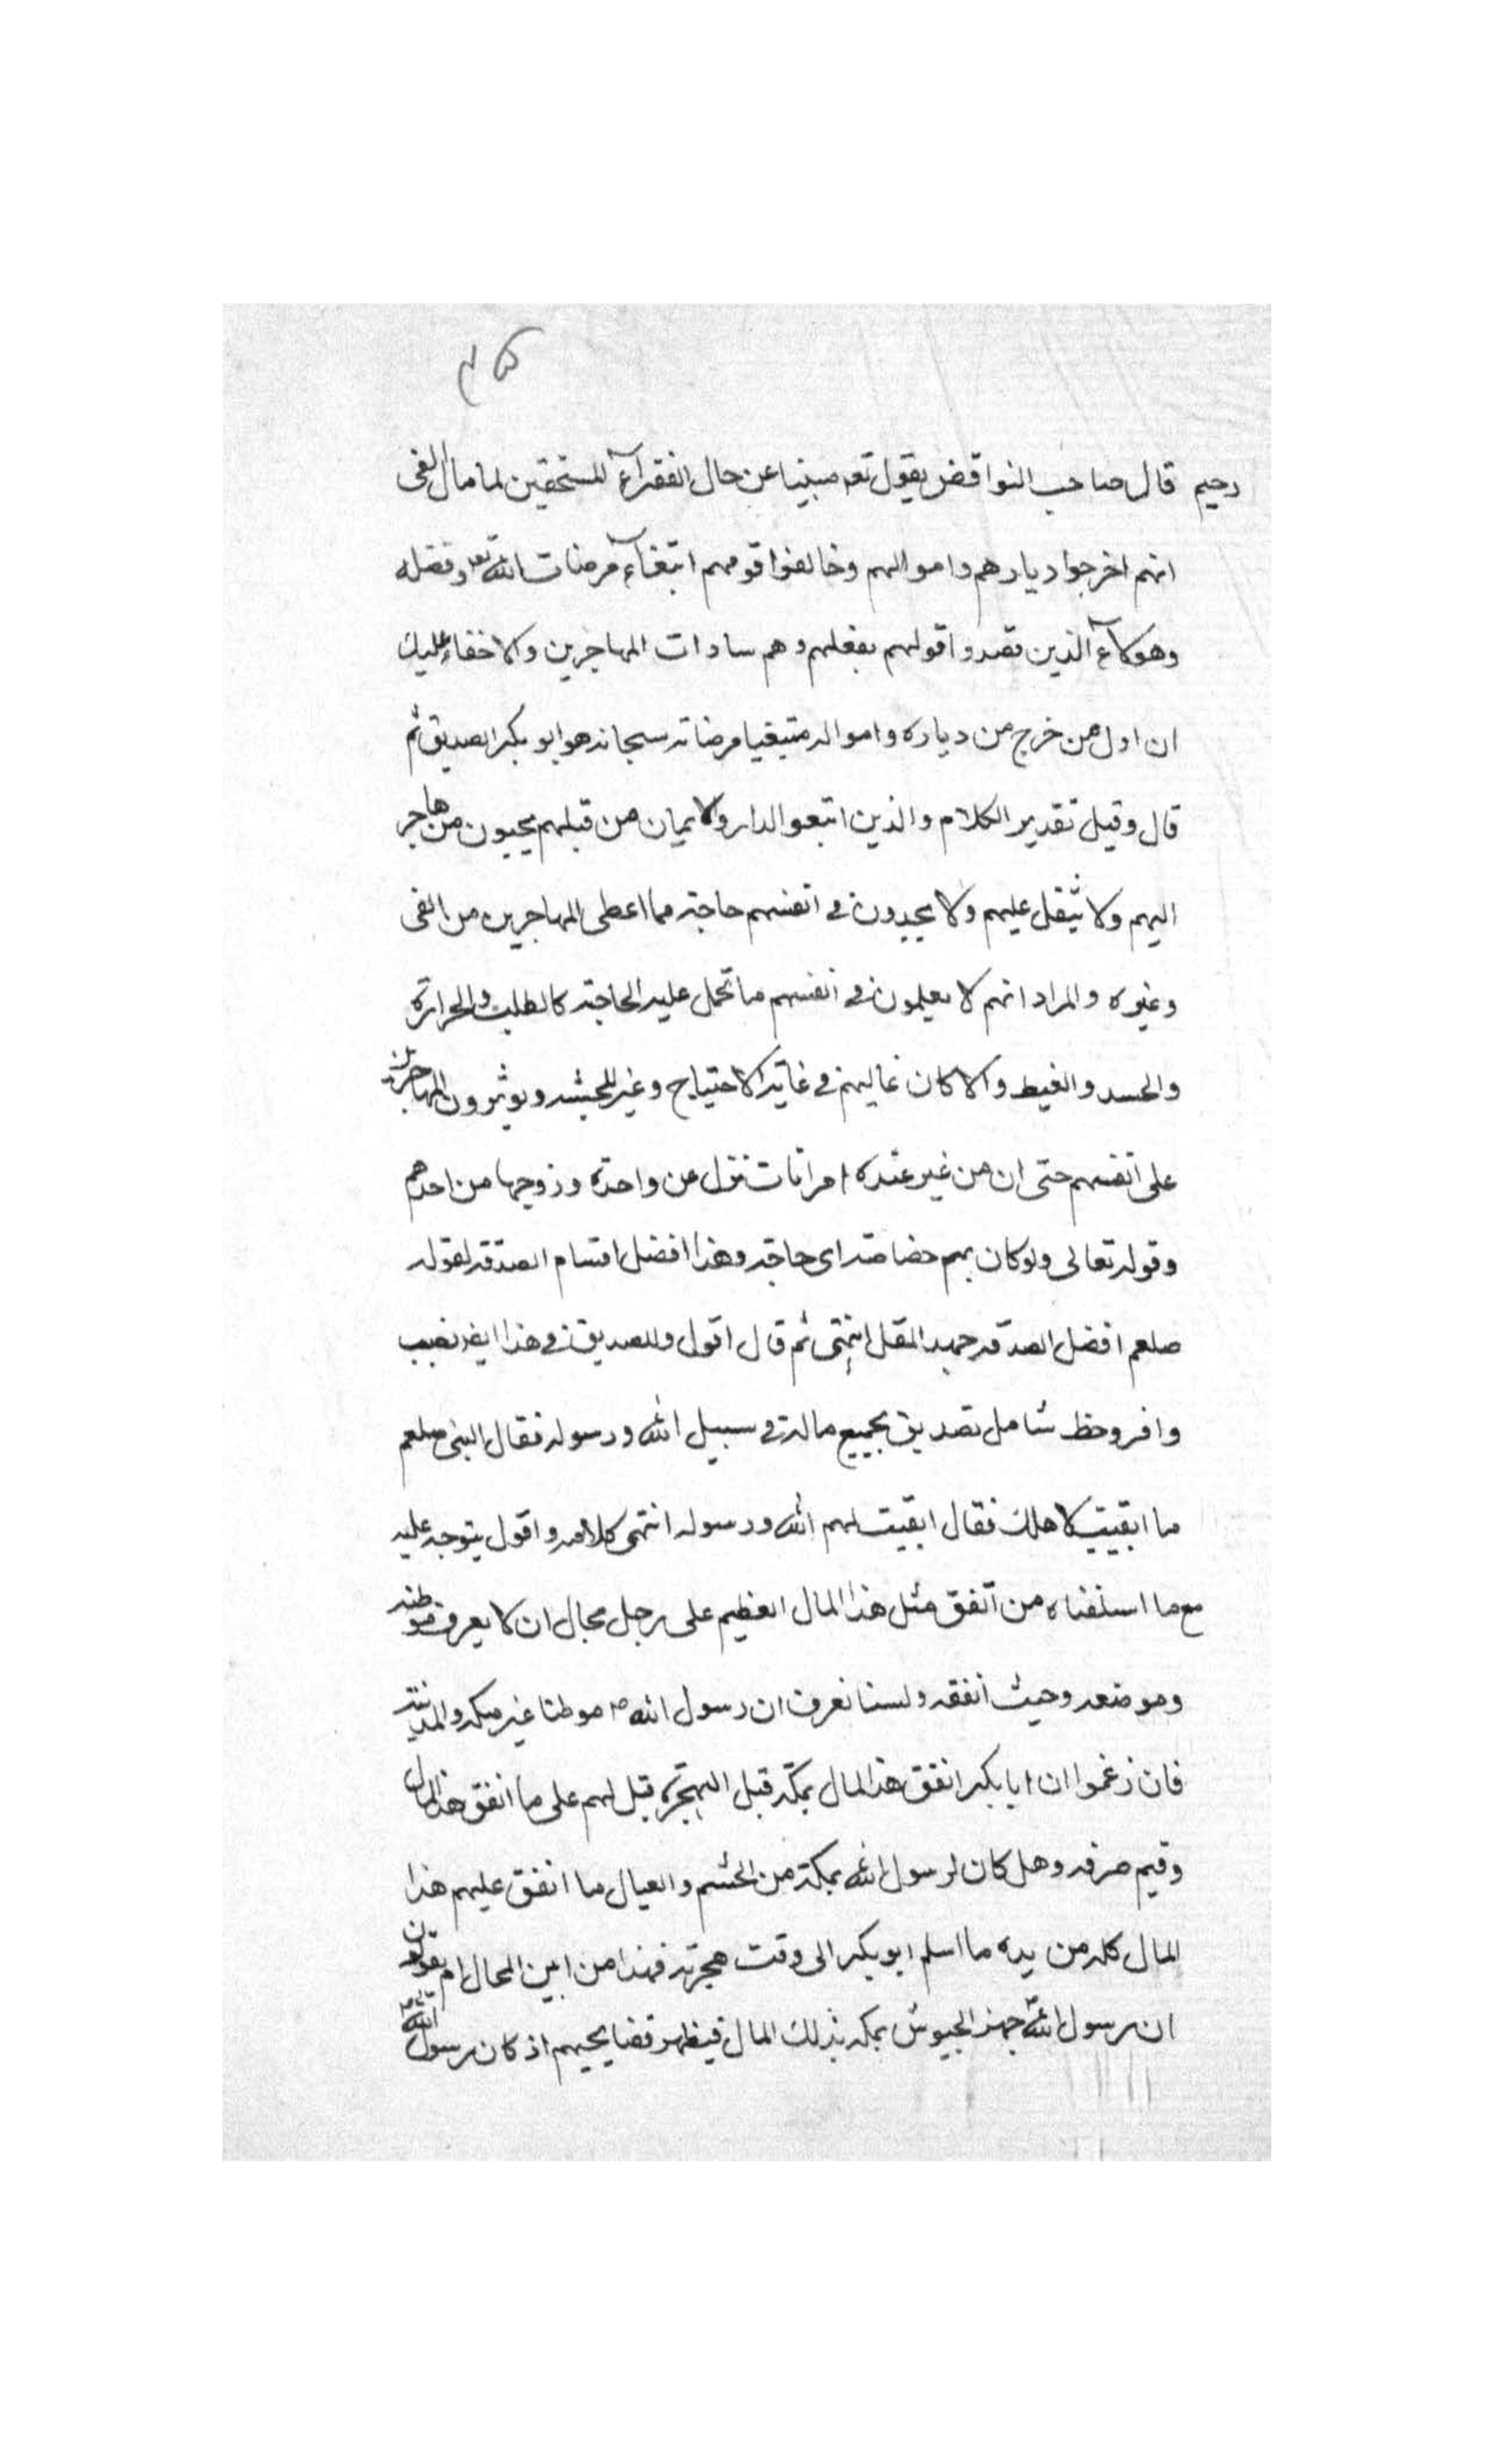 رحيم قال صاحب النواقض يقول تعه مبينا عن حال الفقرآء للمستحقين لما مال الفى
انهم اخرجوا ديارهم واموالهم وخالفوا قومهم ابتغآء مرضات الله تعه وفضله
وهوكآء الذين قصدوا قولهم بفعلهم وهم سادات المهاجرين ولا خفاء عليك
ان اول من خرج من دياره وامواله متبغيا مرضاته سبحانه هو ابو بكر الصديق ثم
قال وقيل تقدير الكلام والذين اتبعو الدار والايمان من قبلهم يحبون من هاجر
اليهم ولا يثقل عليهم ولا يجدون فى انفسهم حاجة مما اعطى المهاجرين من الفى
وغيره والمراد انهم لا يعلمون فى انفسهم ما تحمل عليه الحاجة كالطلب والحرارة
والحسد والغيط والا كان غالبهم فى غاية الاحتياج وغير ويوثرون المهاجرين
على انفسهم حتى ان من غير عنده امراتات نزل عن واحدة وزوجها من احدهم
وقوله تعالى ولو كان بهم خصاصة اى حاجة وهذا افضل اقسام الصدقه لقوله
صلعم افضل الصدقه جهد المقل انتهى ثم قال اقول وللصديق فى هذا ايضا نصيب
وافر وحظ شامل تصديق بجميع ماله فى سبيل الله ورسوله فقال النبى صلعم
ما ابقيت لاهلك فقال ابقيت لهم الله ورسوله انتهى كلامه واقول يتوجه عليه
مع ما اسلفناه من أنفق مثل هذا المال العظيم على رجل محال ان لا يعرف موطنه
وموضعه وحيث انفقه ولسنا نعرف ان رسول الله ص موطنا غير مكه والمدينة
فان زغموا ان ابابكر انفق هذا المال بمكة قبل الهجرة قيل لهم على ما انفق هذا المال
وفيم صرفه وهل كان لرسول الله بمكة من الحشم والعيال ما انفق عليهم هذا
المال كله من يده ما اسلم ابوبكر الى وقت هجرته فهذا من ابين المحال ام يقولون
ان رسول الله جهز الجيوش بمكه بذلك المال فيظهر فضايحهم اذ كان رسول الله